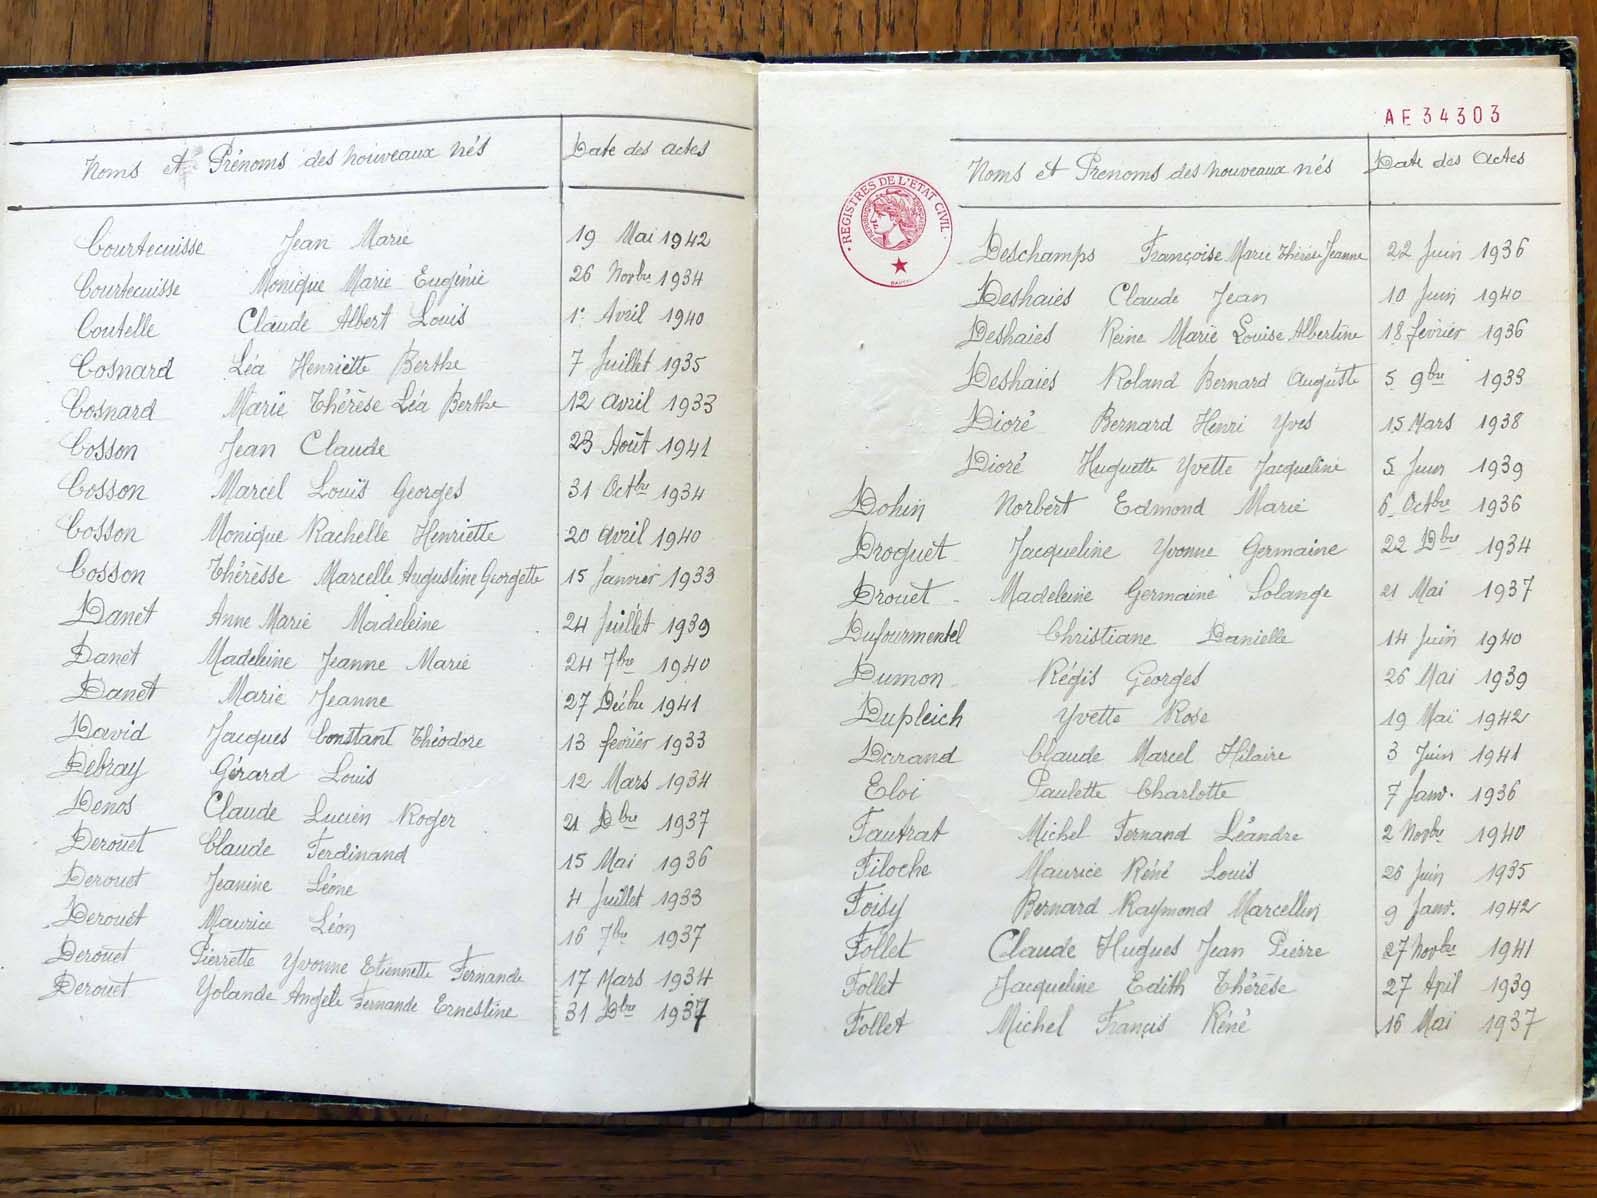 Noms et Prénoms des nouveaux nés Date des actes
Courtecuisse Jean Marie 19 Mai 1942
Courtecuisse Monique Marie Eugénie 26 Novbre 1934
Coutelle Claude Albert Louis 1er Avril 1940
Cosnard Léa Henriette Berthe 7 Juillet 1935
Cosnard Marie Thérèse Léa Berthe 12 avril 1933
Cosson Jean Claude 23 Août 1941
Cosson Marcel Louis Georges 31 Octbre 1934
Cosson Monique Rachelle Henriette 20 avril 1940
Cosson Thérèsse Marcelle Augustine Georgette 15 Janvier 1933
Danet Anne Marie Madeleine 24 Juillet 1939
Danet Madeleine Jeanne Marie 24 7bre 1940
Danet Marie Jeanne 27 Décbre 1941
David Jacques Constant Théodore 13 février 1933
Debray Gérard Louis 12 Mars 1934
Denos Claude Lucien Roger 21 Dbre 1937
Derouet Claude Ferdinand 15 Mai 1936
Derouet Jeanine Léone 4 Juillet 1933
Derouet Maurice Léon 16 7bre 1937
Derouet Pierrette Yvonne Etiennette Fernande 17 Mars 1934
Derouet Yolande Angèle Fernande Ernestine 31 Dbre 1937
AE34303
REGISTRES DE L'ETAT CIVIL
Noms et Prenoms des nouveaux nés Date des actes
Deschamps Françoise Marie Thérèse Jeanne 22 Juin 1936
Deshaies Claude Jean 10 Juin 1940
Deshaies Reine Marie Louise Albertine 18 février 1936
Deshaies Roland Bernard Auguste 5 9bre 1933
Dioré Bernard Henri Yves 15 Mars 1938
Dioré Huguette Yvette Jacqueline 5 Juin 1939
Dohin Norbert Edmond Marie 6 Octbre 1936
Droguet Jacqueline Yvonne Germaine 22 Dbre 1934
Drouet Madeleine Germaine Solange 21 Mai 1937
Dufourmentel Christiane Danielle 14 Juin 1940
Dumon Régis Georges 26 Mai 1939
Dupleich Yvette Rose 19 Mai 1942
Durand Claude Marcel Hilaire 3 Juin 1941
Eloi Paulette Charlotte 7 Janv. 1936
Fautrat Michel Fernand Léandre 2 Novbre 1940
Filoche Maurice Réné Louis 26 Juin 1935
Foisy Bernard Raymond Marcellin 9 Janv. 1942
Follet Claude Hugues Jean Pierre 27 Novbre 1941
Follet Jacqueline Edith Thérèse 27 April 1939
Follet Michel Francis Réné 16 Mai 1937